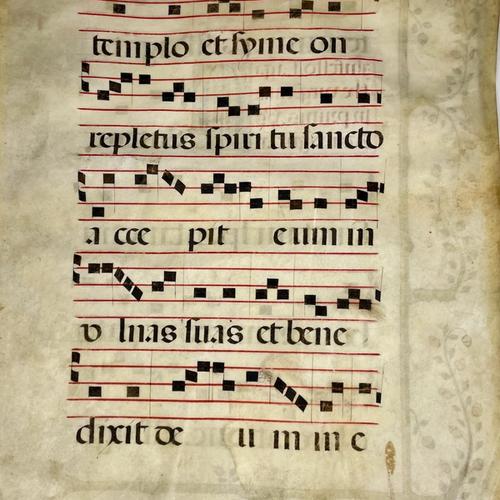 templo et syme on
repletus spiri tu sancto
a cce pit eum in
v lnas suas et bene
dixit de u m in e